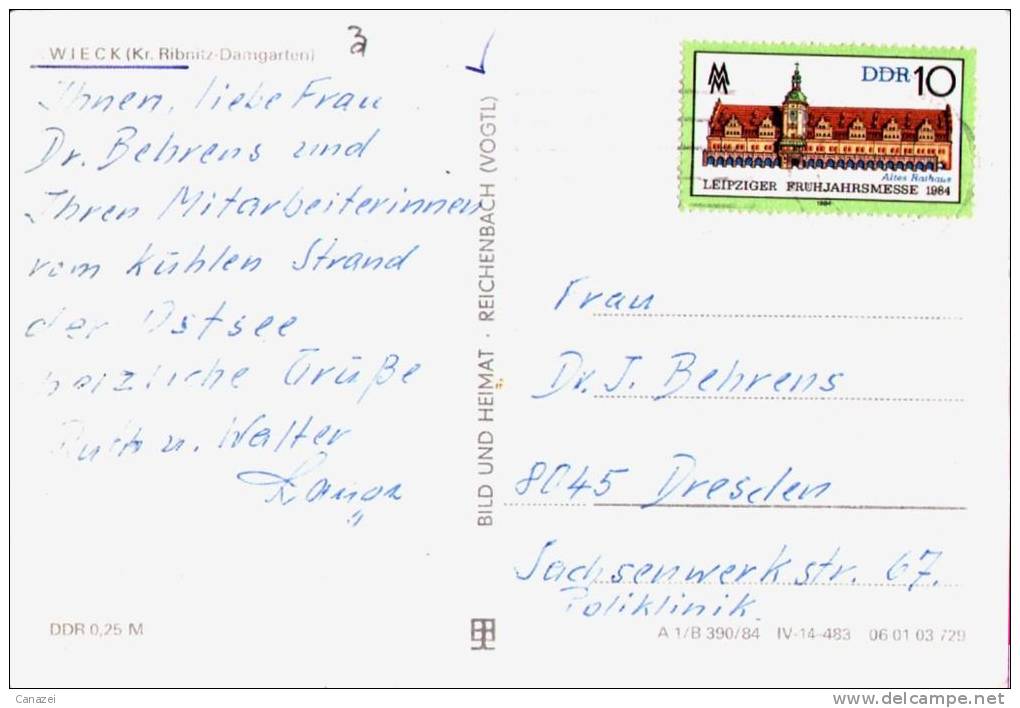 WIECK (Kr. Ribnitz-Damgarten)
Ihnen, liebe Frau
Dr. Behrens und
Ihren Mitarbeiterinnen
vom kühlen Strand
der Ostsee
herzliche Grüße
Ruth u. Walter
BILD UND HEIMAT · REICHENBACH (VOGTL)
DDR 10
Altes Rathaus
LEIPZIGER FRÜHJAHRSMESSE 1984
1984
Frau
Dr. J. Behrens
8045 Dresden
Sachsenwerkstr. 67.
Poliklinik.
DDR 0,25 M
A 1/B 390/84 IV-14-483 06 01 03 729
Canazei
http://www.delcampe.net